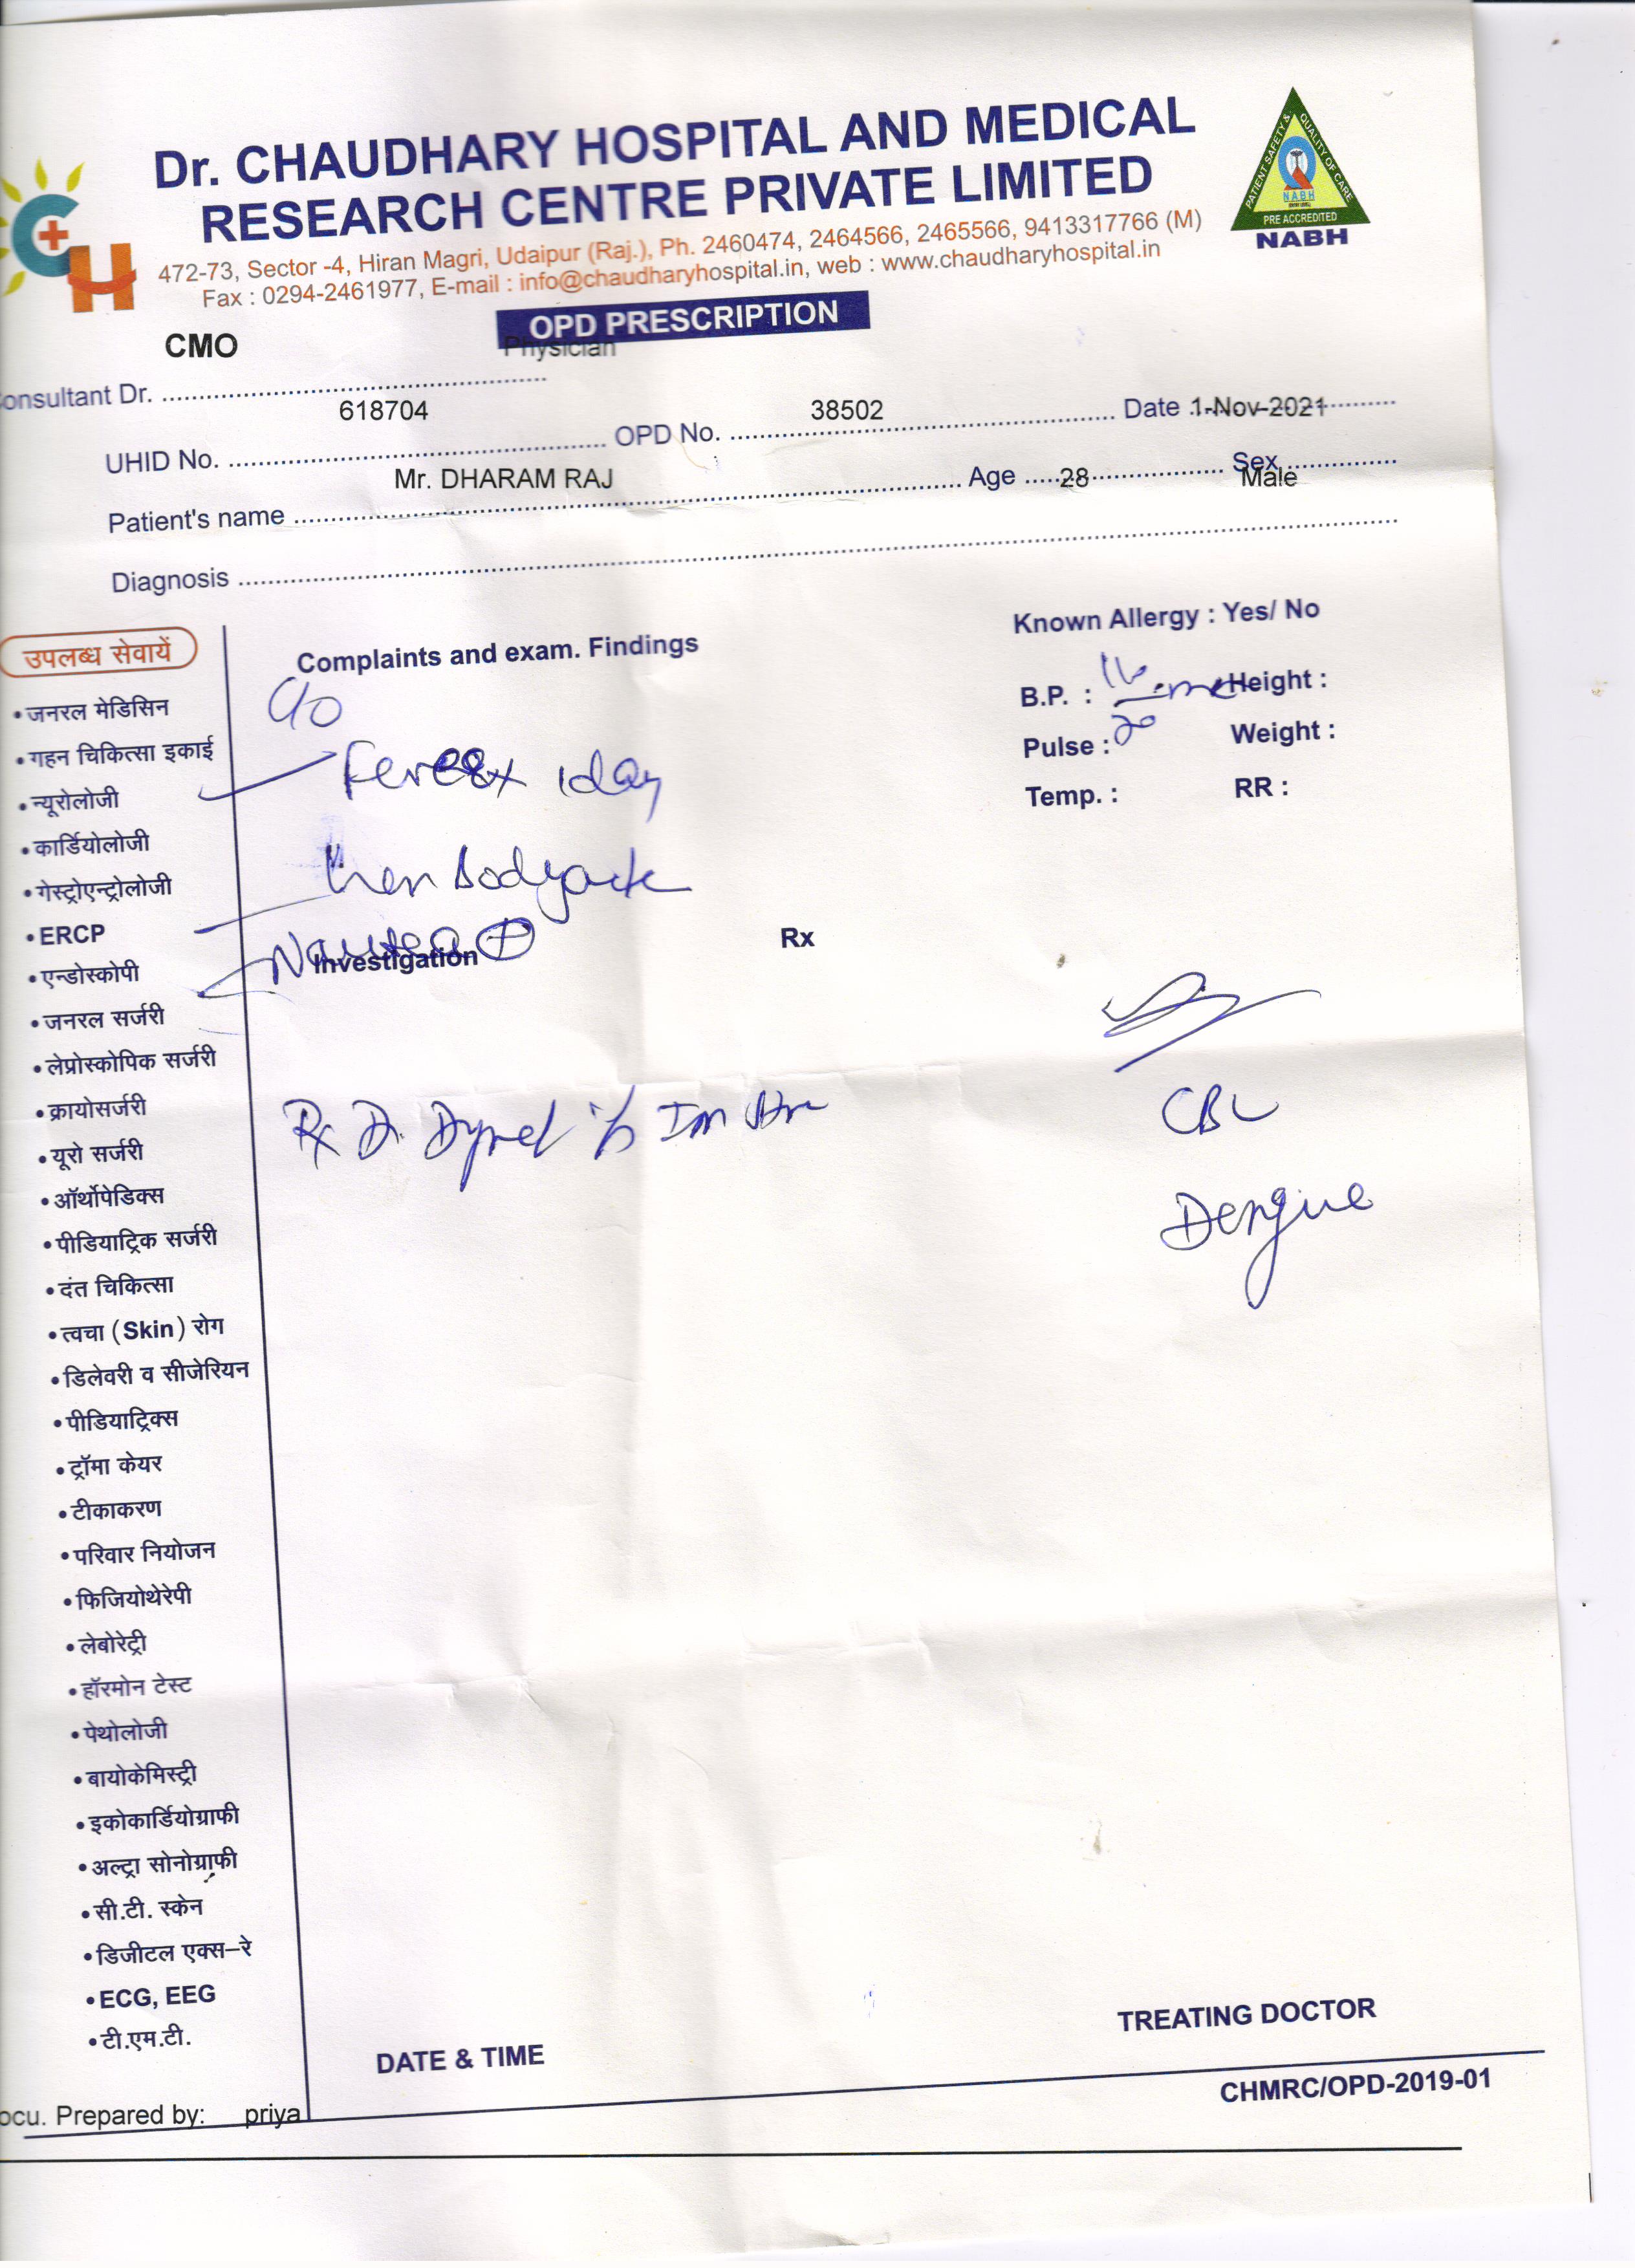 Dr. CHAUDHARY HOSPITAL AND MEDICAL
RESEARCH CENTRE PRIVATE LIMITED
472-73, Sector -4, Hiran Magri, Udaipur (Raj.), Ph. 2460474, 2464566, 2465566, 9413317766 (M)
Fax : 0294-2461977, E-mail : info@chaudharyhospital.in, web : www.chaudharyhospital.in
PATIENT SAFETY & QUALITY OF CARE
NABH
PRE ACCREDITED
NABH
OPD PRESCRIPTION
CMO Physician
onsultant Dr.
UHID No. 618704 OPD No. 38502 Date 1-Nov-2021
Patient's name Mr. DHARAM RAJ Age 28 Sex Male
Diagnosis
Known Allergy : Yes/ No
B.P. : Height :
Pulse : Weight :
Temp. : RR :
Complaints and exam. Findings
C/o
Fever x 1day
Bodyache
Nausea +
Investigation
Rx
Rx
CBC
Dengue
उपलब्ध सेवायें
• जनरल मेडिसिन
• गहन चिकित्सा इकाई
• न्यूरोलोजी
• कार्डियोलोजी
• गेस्ट्रोएन्ट्रोलोजी
• ERCP
• एन्डोस्कोपी
• जनरल सर्जरी
• लेप्रोस्कोपिक सर्जरी
• क्रायोसर्जरी
• यूरो सर्जरी
• ऑर्थोपेडिक्स
• पीडियाट्रिक सर्जरी
• दंत चिकित्सा
• त्वचा (Skin) रोग
• डिलेवरी व सीजेरियन
• पीडियाट्रिक्स
• ट्रॉमा केयर
• टीकाकरण
• परिवार नियोजन
• फिजियोथेरेपी
• लेबोरेट्री
• हॉरमोन टेस्ट
• पेथोलोजी
• बायोकेमिस्ट्री
• इकोकार्डियोग्राफी
• अल्ट्रा सोनोग्राफी
• सी.टी. स्केन
• डिजीटल एक्स-रे
• ECG, EEG
• टी.एम.टी.
DATE & TIME
TREATING DOCTOR
CHMRC/OPD-2019-01
ocu. Prepared by: priya